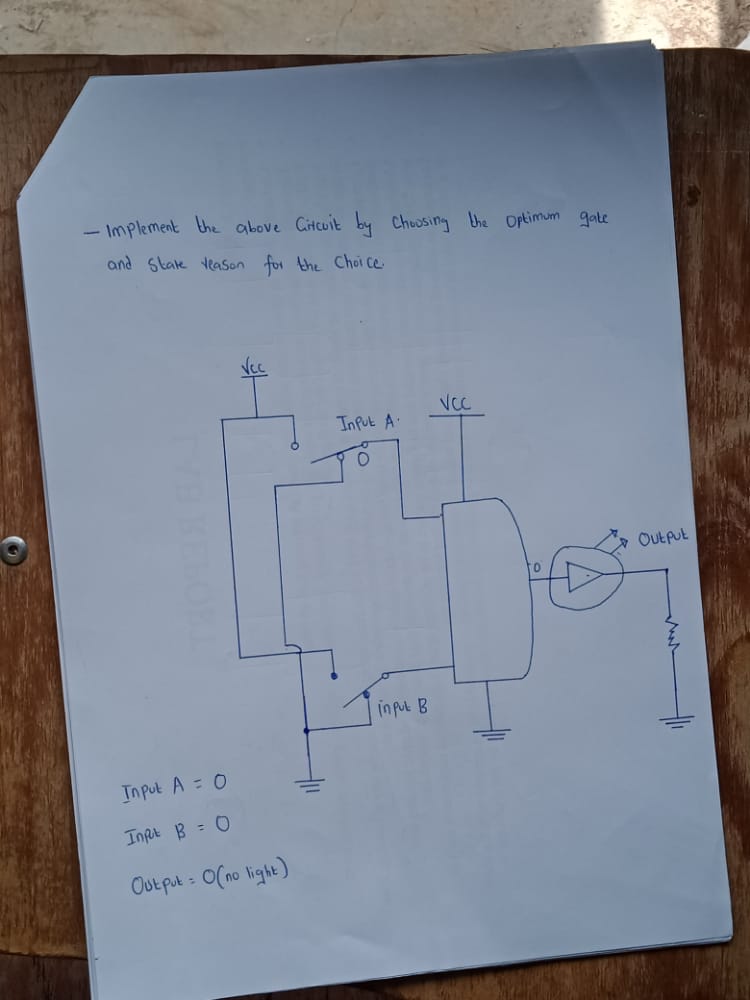 — Implement the above Circuit by Choosing the Optimum gate
and State reason for the Choice.
Vcc
Input A.
VCC
0
0
Output
input B
Input A = 0
Input B = 0
Output = 0 (no light)